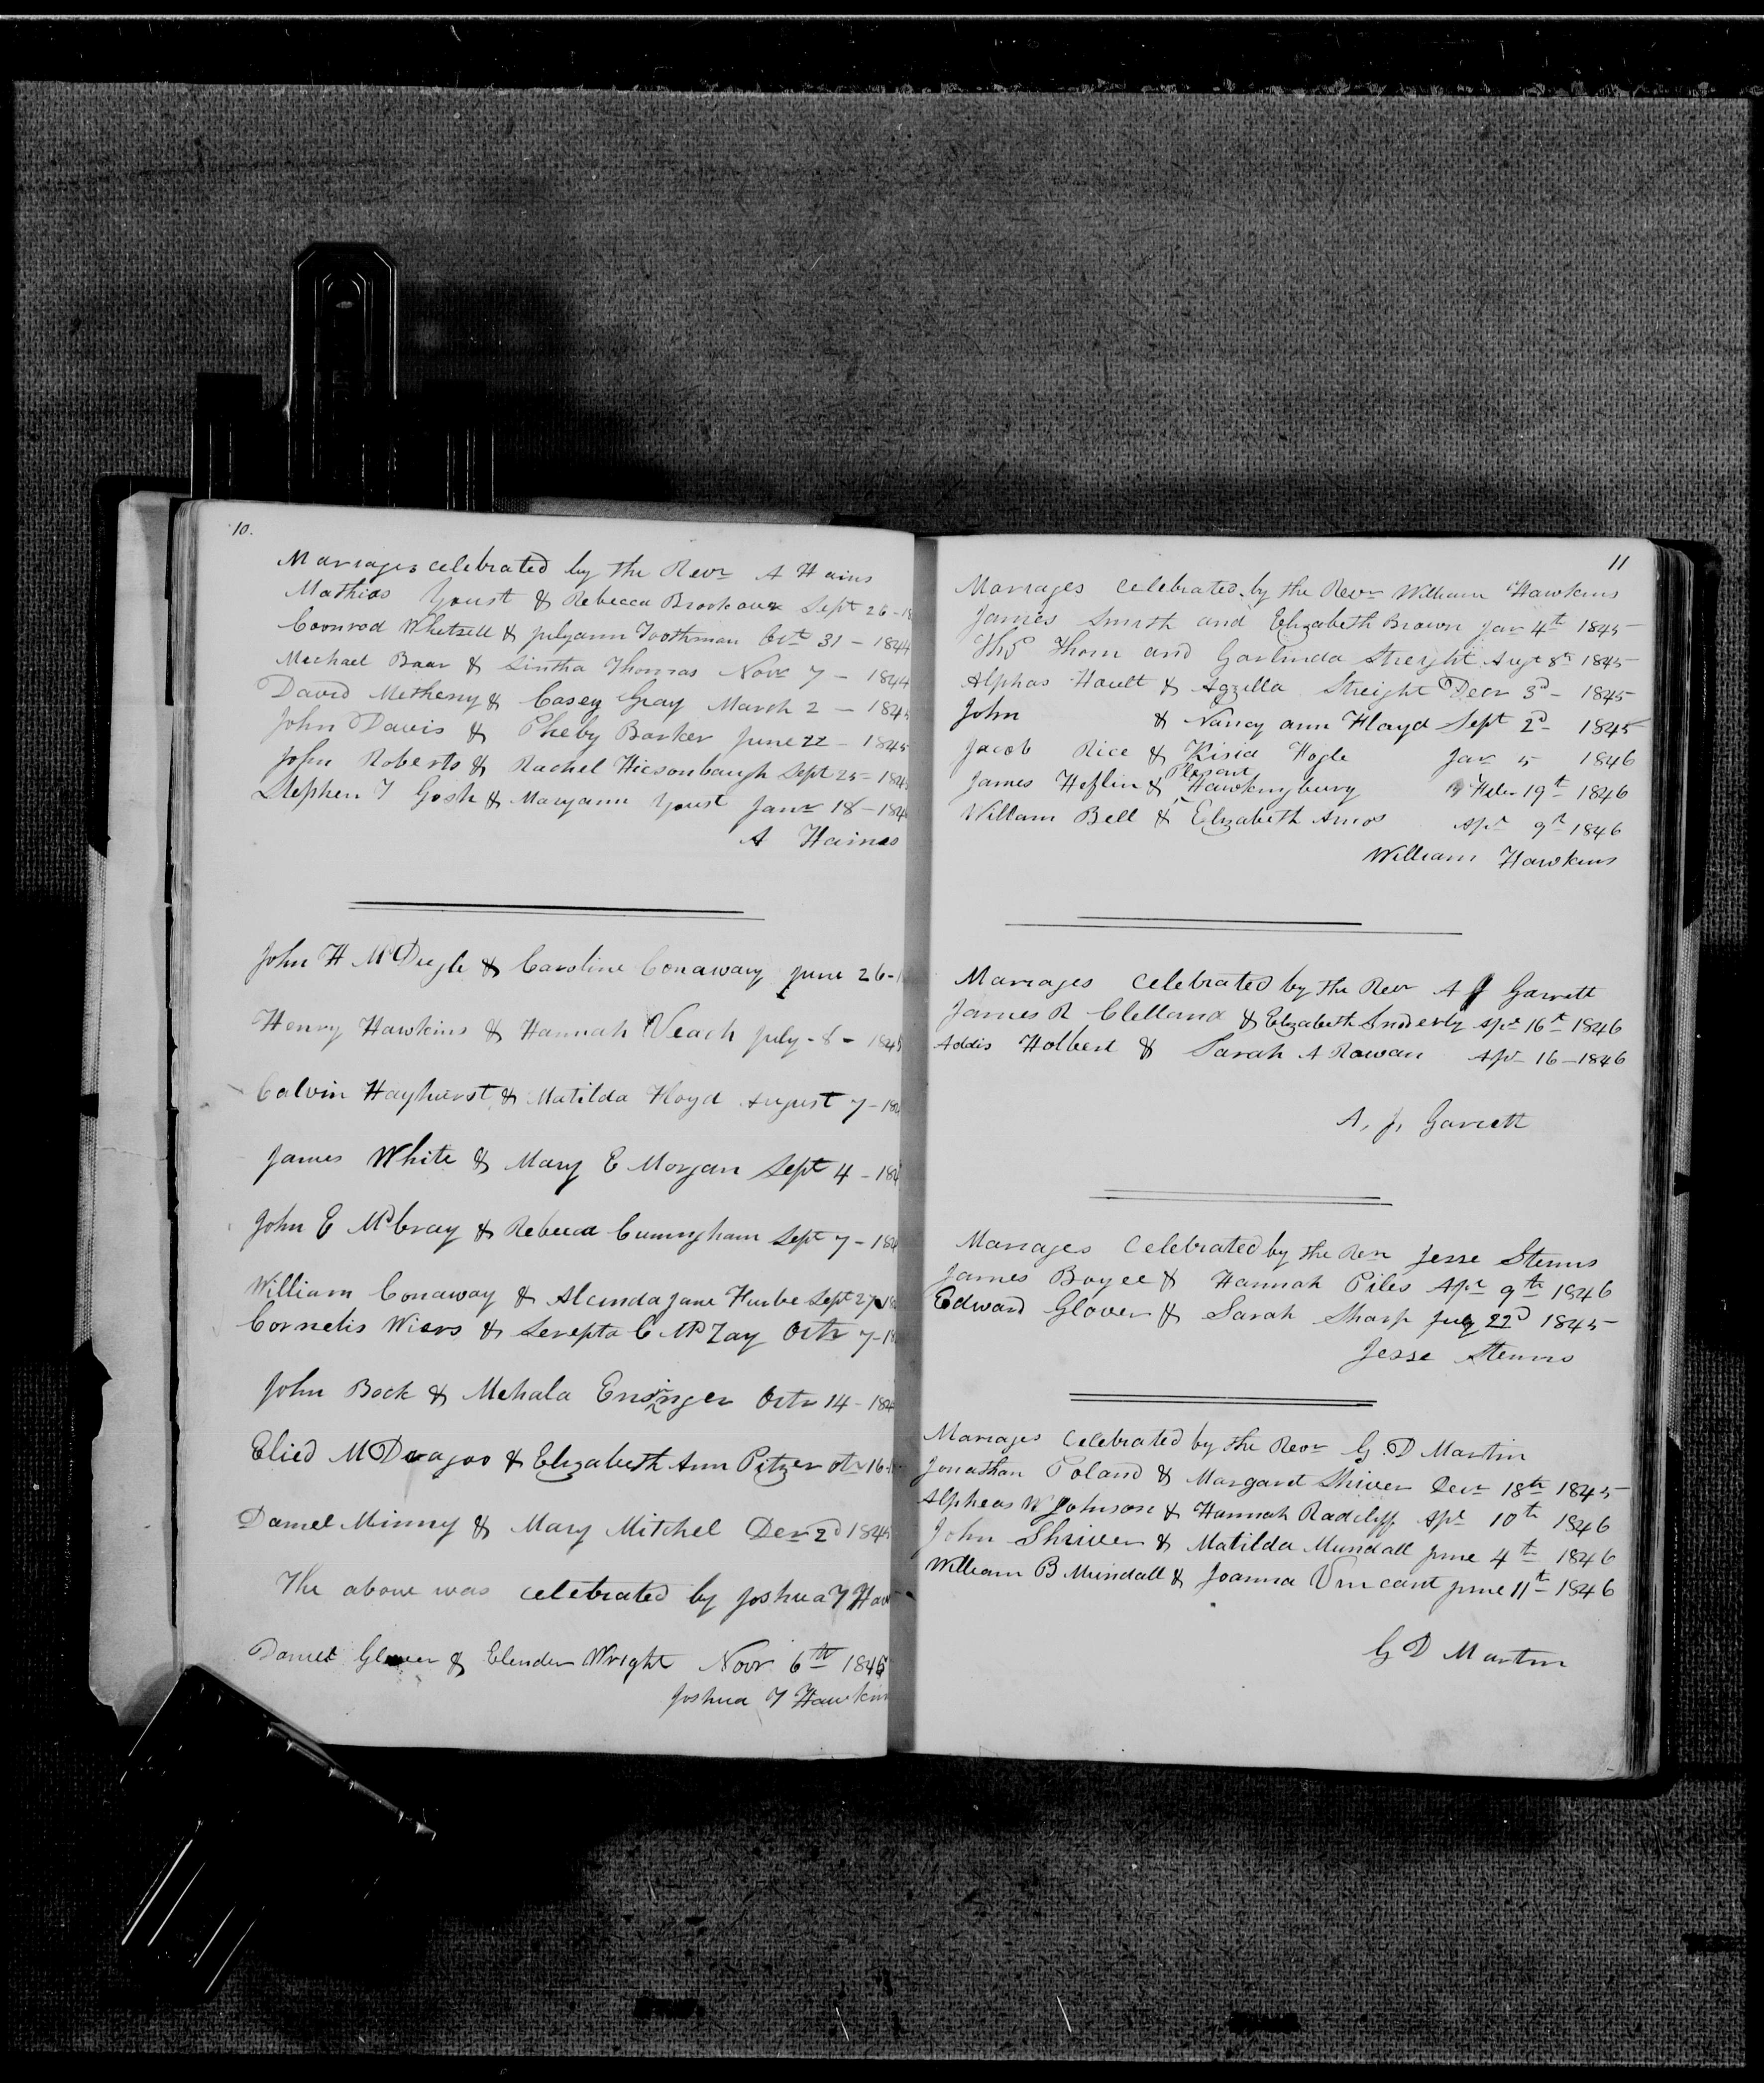 10.
Marriages celebrated by the Revr A Hains
Mathias Youst & Rebecca Brookover Sept 26 - 18
Coonrod Whetsell & Julyann Toothman Octr 31 - 1844
Michael Baar & Sintha Thomas Novr 7 - 1844
David Metheny & Casey Gray March 2 - 184
John Davis & Pheby Barker June 22 - 1845
John Roberts & Rachel Hiesonbaugh Sept 25 - 184
Stephen T Gosh & Maryann Youst Janr 18 - 184
A Haines
John H McDugle & Caroline Conaway June 26 -
Henry Hawkins & Hannah Veach July - 8 - 184
Calvin Hayhurst & Matilda Floyd August 7 - 18
James White & Mary E Morgan Sept 4 - 184
John E McCray & Rebecca Cuningham Sept 7 - 184
William Conaway & Alcinda Jane Sept 27 18
Cornelis Wiers & Serepta C Octr 7 - 18
John Bock & Mehala Octr 14 - 184
& Elizabeth Ann Pitzer 16
Daniel Minny & Mary Mitchel Decr 2d 1845
The above was celebrated by Joshua T Haw
Daniel Glover & Elender Wright Novr 6th 1845
Joshua T Hawkin
11
Marriages celebrated by the Revr William Hawkins
James Smith and Elizabeth Brown Jan 4th 1845
Thos Thorn and Garlinda Streight Augt 8th 1845
Alphas Hault & Agzella Streight Decr 3d - 1845
John & Nancy ann Floyd Sept 2d - 1845
Jacob Rice & Kisia Hogle Jan 5 1846
Plesant
James Heflin & Hawkinsbury Feb 19th 1846
William Bell & Elizabeth Amos Apr 9th 1846
William Hawkins
Marriages celebrated by the Revr A J Garrett
James R Clelland & Elizabeth Snoderly Apr 16th 1846
Addis Holbert & Sarah A Rowan Apr - 16 - 1846
A, J, Garrett
Marriages celebrated by the Revr Jesse Stenns
James Boyce & Hannah Piles Apr 9th 1846
Edward Glover & Sarah Sharp July 22d 1845
Jesse Stenns
Marriages celebrated by the Revr G. D Martin
Jonathan Poland & Margaret Shiver Decr 18th 1845
Alpheas W Johnson & Hannah Radcliff Apr 10th 1846
John Shriver & Matilda Mundall June 4th 1846
William B Mundall & Joanna Vincant June 11th 1846
G D Martin